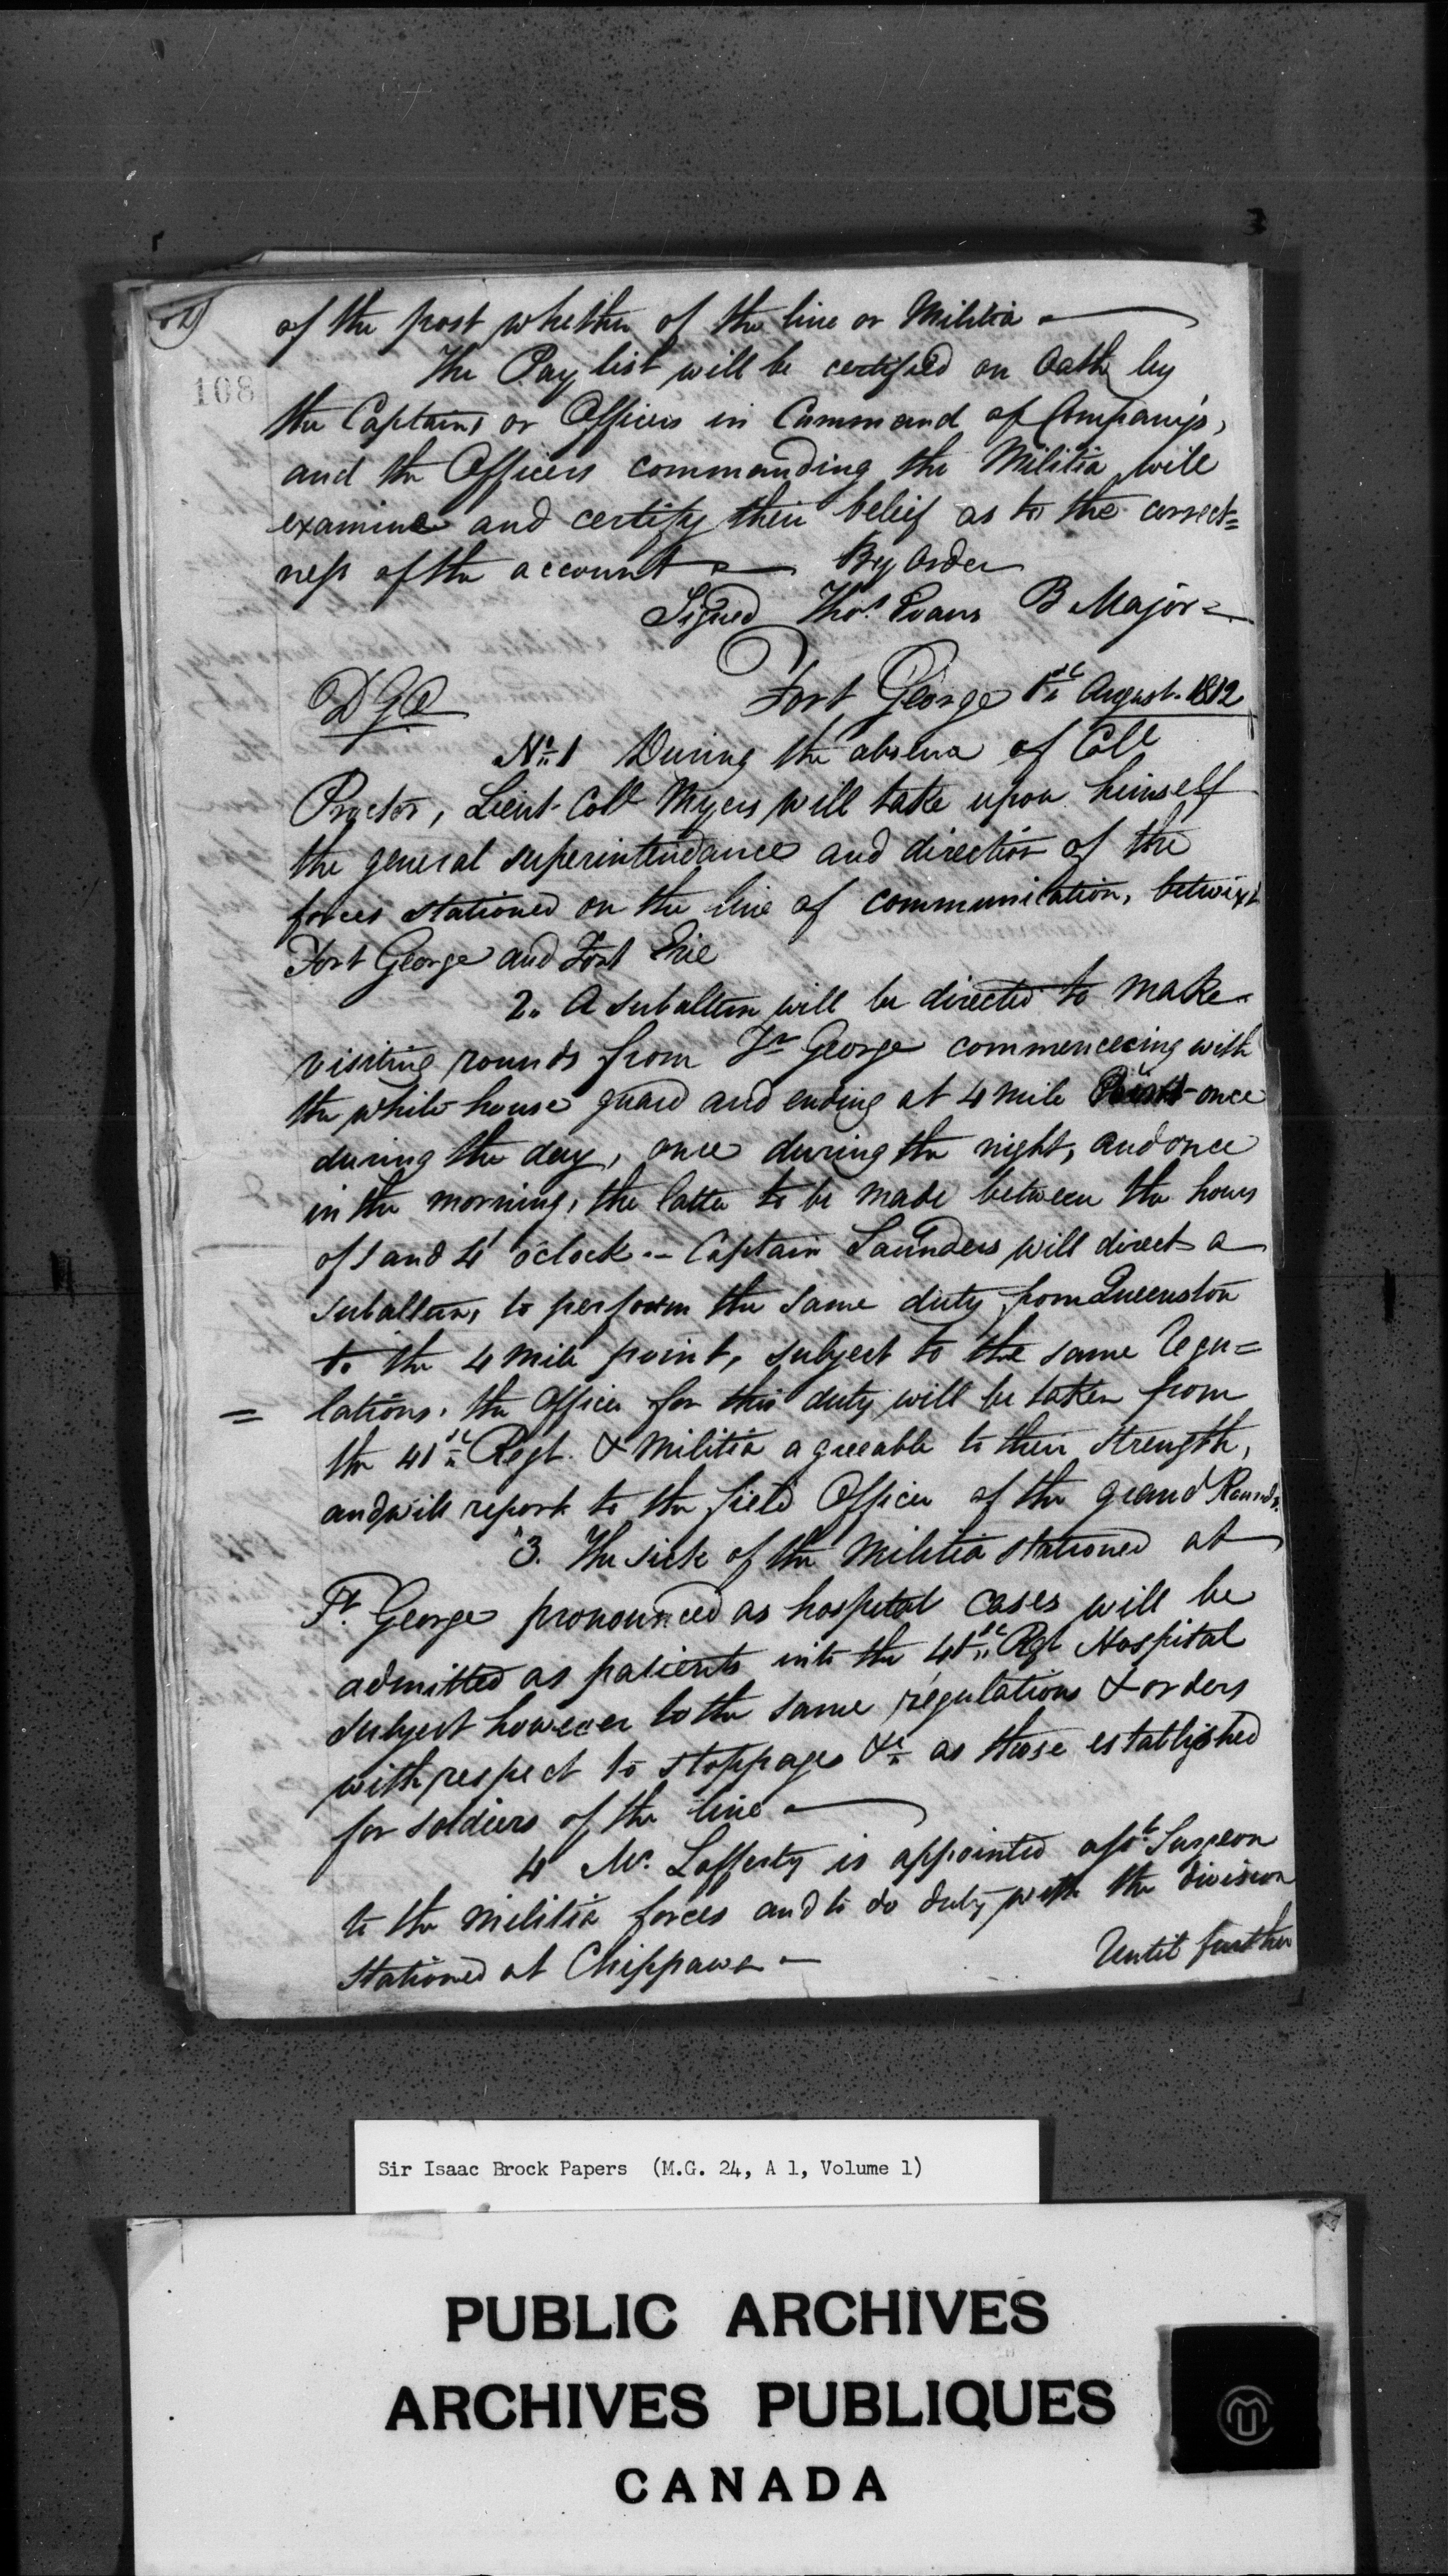 108
of the post whether of the line or Militia —
The Pay list will be certified on Oath by
the Captains or Officers in Command of Companys,
and the Officers commanding the Militia will
examine and certify their belief as to the correct=
ness of the account — By order
Signed Thos. Evans B Major =
DGO Fort George 1st August. 1812
No. 1 During the absence of Coll
Procter, Lieut-Coll Myers will take upon himself
the general superintendance and direction of the
forces stationed on the line of communication, betwixt
Fort George and Fort Erie
2. A subaltern will be directed to make
visiting rounds from Ft George commenceing with
the white house guard and ending at 4 mile Point once
during the day, once during the night, and once
in the morning, the latter to be made between the hours
of 1 and 4 oclock. — Captain Saunders will direct a
subaltern, to perform the same duty from Queenston
to the 4 mile point, subject to the same regu=
= lations. the Officer for this duty will be taken from
the 41st Regt. & Militia agreeable to their strength,
and will report to the field Officer of the grand Rounds.
3. The sick of the Militia stationed at
Ft. George pronounced as hospital cases will be
admitted as patients into the 41st Regt Hospital
subject however to the same regulations & orders
with respect to stoppages &c as those established
for soldiers of the line —
4 Mr. Lafferty is appointed asst. Surgeon
to the militia forces and to do duty with the division
stationed at Chippawa —
Until further
Sir Isaac Brock Papers (M.G. 24, A 1, Volume 1)
PUBLIC ARCHIVES
ARCHIVES PUBLIQUES
CANADA